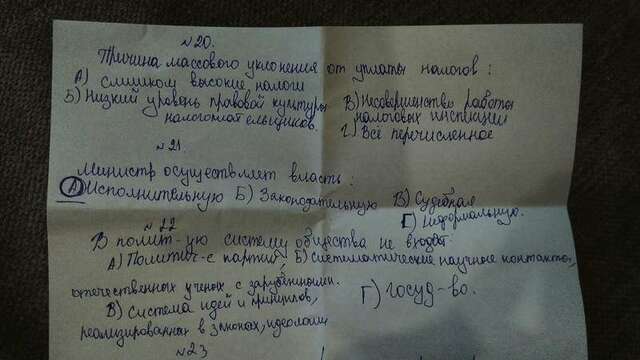 №20.
Причина массового уклонения от уплаты налогов :
А) слишком высокие налоги
Б) Низкий уровень правовой культуры
налогоплательщиков.
В) Несовершенство работы
налоговых инспекций
Г) Всё перечисленное
№21.
Министр осуществляет власть :
А) Исполнительную Б) Законодательную В) Судебная
Г) Неформальную.
№22
В полит-ую систему общества не входят:
А) Политич-е партии, Б) Систематические научные контакты,
отечественных ученых с зарубежными.
В) Система идей и принципов,
реализированных в законах, идеологии
Г) госуд-во.
№23